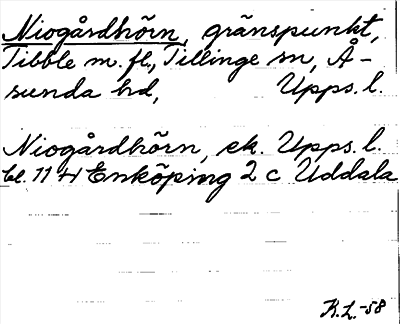 Niogårdhörn, gränspunkt,
Tibble m. fl., Tillinge sn, Å-
sunda hd, Upps. l.
Niogårdhörn, ek. Upps. l.
bl. 11 H Enköping 2 c Uddala
K.L.-58